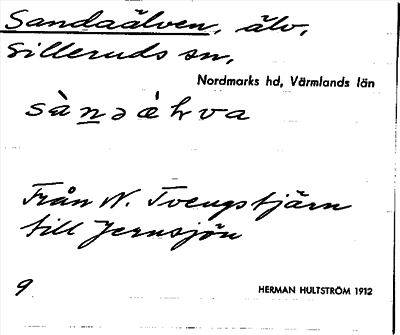 Sandaälven, älv,
Silleruds sn,
Nordmarks hd, Värmlands län
sàn̲ə ę́lva
Från N. Tvengstjärn
till Jernsjön
9
HERMAN HULTSTRÖM 1912